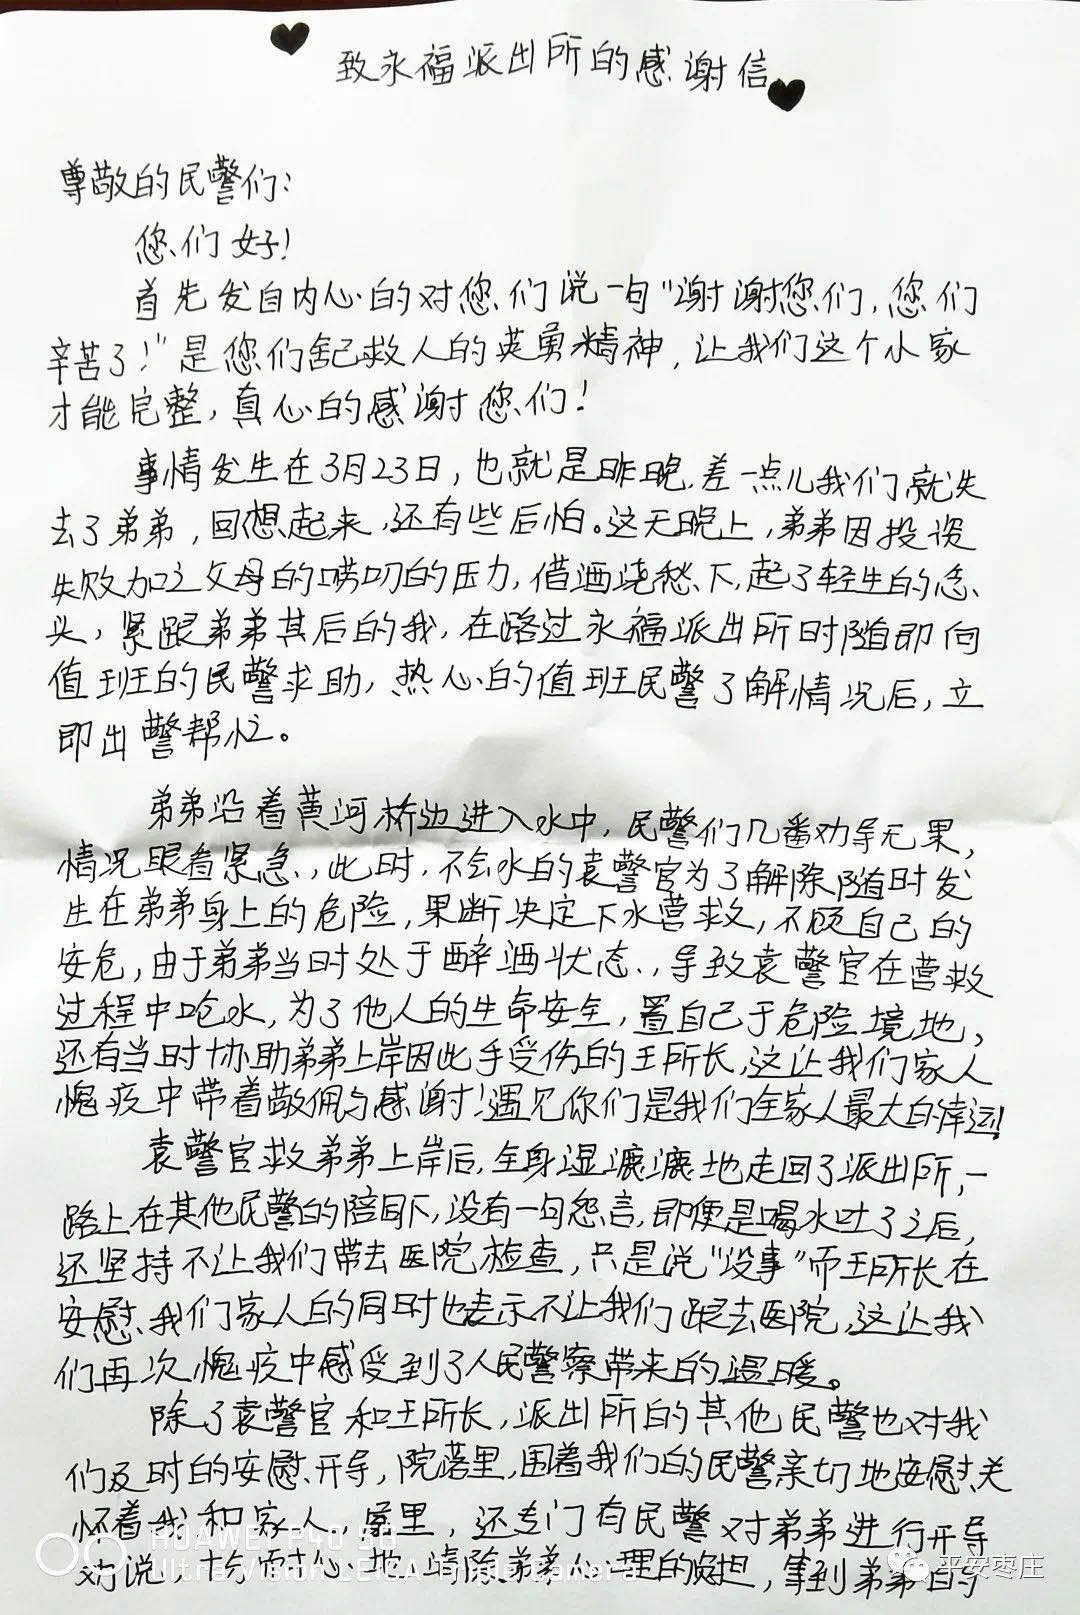 致永福派出所的感谢信
尊敬的民警们：
您们好！
首先发自内心的对您们说一句“谢谢您们，您们
辛苦了！”是您们舍己救人的英勇精神，让我们这个小家
才能完整，真心的感谢您们！
事情发生在3月23日，也就是昨晚，差一点儿我们就失
去了弟弟，回想起来，还有些后怕。这天晚上，弟弟因投资
失败加之父母的唠叨的压力，借酒浇愁下，起了轻生的念
头，紧跟弟弟其后的我，在路过永福派出所时随即向
值班的民警求助，热心的值班民警了解情况后，立
即出警帮忙。
弟弟沿着黄河桥边进入水中，民警们几番劝导无果，
情况眼看紧急，此时，不会水的袁警官为了解除随时发
生在弟弟身上的危险，果断决定下水营救，不顾自己的
安危，由于弟弟当时处于醉酒状态，导致袁警官在营救
过程中呛水，为了他人的生命安全，置自己于危险境地，
还有当时协助弟弟上岸因此手受伤的王所长，这让我们家人
愧疚中带着敬佩与感谢！遇见你们是我们全家人最大的幸运！
袁警官救弟弟上岸后，全身湿漉漉地走回了派出所，一
路上在其他民警的陪同下，没有一句怨言，即便是喝水吐了之后，
还坚持不让我们带去医院检查，只是说“没事”而王所长在
安慰我们家人的同时也表示不让我们跟去医院，这让我
们再次愧疚中感受到了人民警察带来的温暖。
除了袁警官和王所长，派出所的其他民警也对我
们及时的安慰开导，院落里，围着我们的民警亲切地安慰关
怀着我和家人，屋里，还专门有民警对弟弟进行开导
劝说，十分耐心地清除弟弟心理的负担，等到弟弟的
HUAWEI P40 5G
Ultra Vision LEICA Triple Camera
平安枣庄